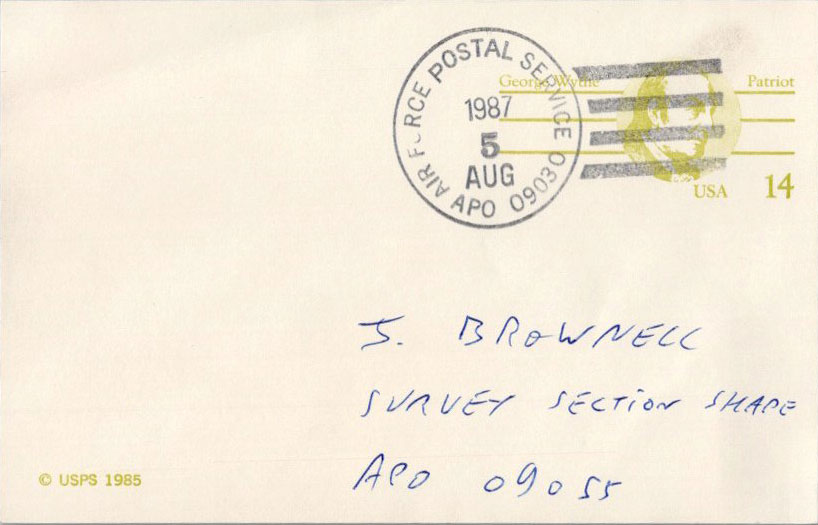 AIR FORCE POSTAL SERVICE
1987
5
AUG
APO 09030
George Wythe
Patriot
USA 14
J. BROWNELL
SURVEY SECTION SHAPE
APO 09055
© USPS 1985